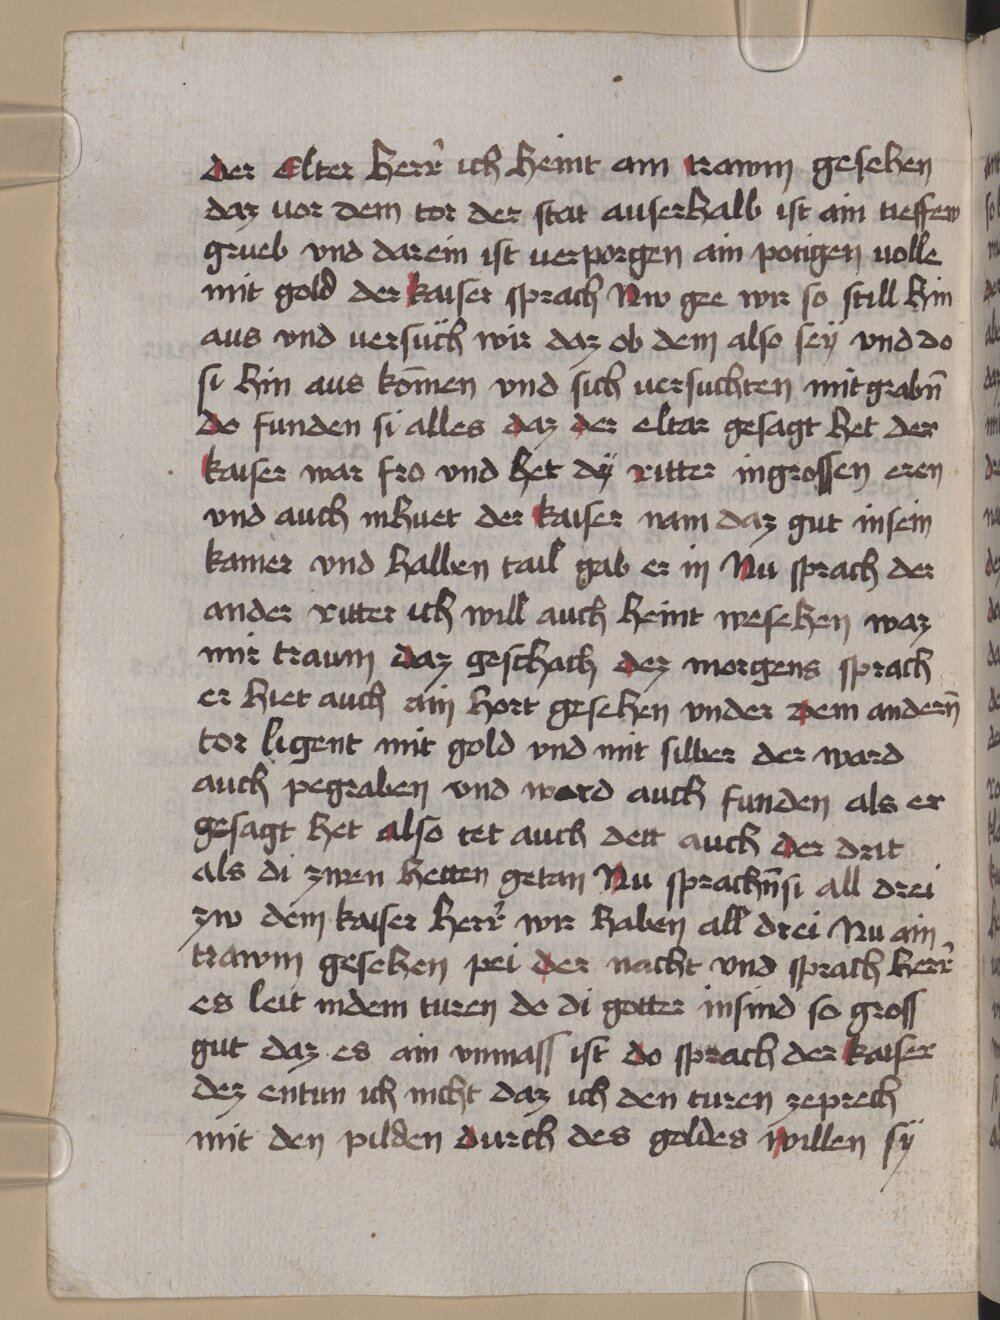 der Elter herr̄ ich heint am trawm gesehen
daz vor dem tor der stat auserhalb ist ain tieffew
grueb vnd darein ist verporgen ain potigen volle
mit gold der kaiser sprach Nw gee wir so still hin
aus vnd versuch wir daz ob dem also seÿ vnd do
si hin aus kōmen vnd sich versuchten mit grabn̄
do funden si alles daz der eltar gesagt het der
kaiser war fro vnd het dÿ ritter ingrossen eren
vnd auch inhuet der kaiser nam daz gut insein
kamer vnd halben tail gab er in Nu sprach der
ander ritter ich will auch heint wesehen waz
mir traum daz geschach dez morgens sprach
er hiet auch ain hort gesehen vnder dem andern̄
tor ligent mit gold vnd mit silber der ward
auch pegraben vnd word auch funden als er
gesagt het also tet auch dett auch der drit
als di zwen hetten getan Nu sprachn̄ si all drei
zw dem kaiser herr̄ wir haben all drei Nu ain
trawm gesehen pei der nacht vnd sprach herr̄
es leit indem turen do di gotter insind so gross
gut daz es ain vnmass ist do sprach der kaiser
dez entun ich nicht daz ich den turen zeprech
mit den pilden durch des goldes willen sÿ